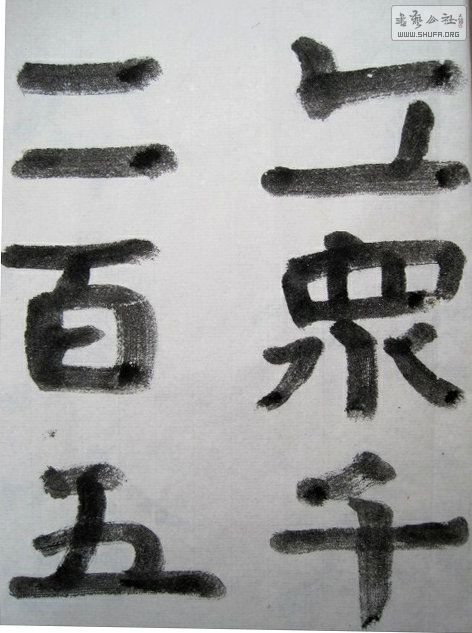 丘眾千
二百五
書藝公社
WWW.SHUFA.ORG